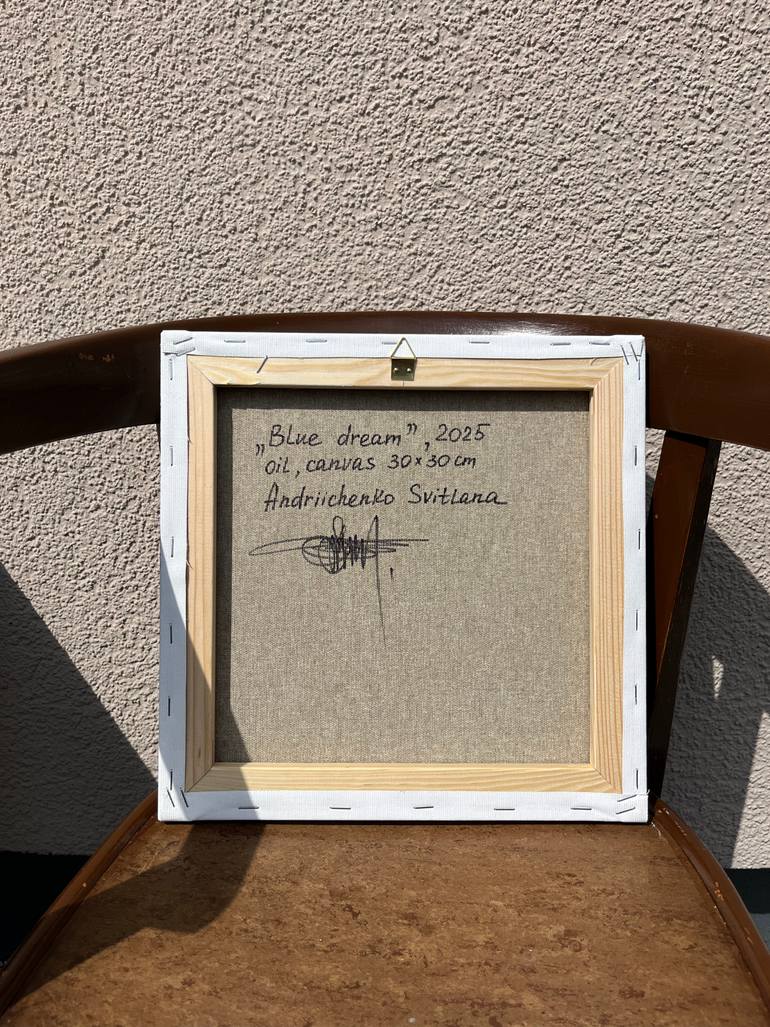 „Blue dream”, 2025
oil, canvas 30×30 cm
Andriichenko Svitlana